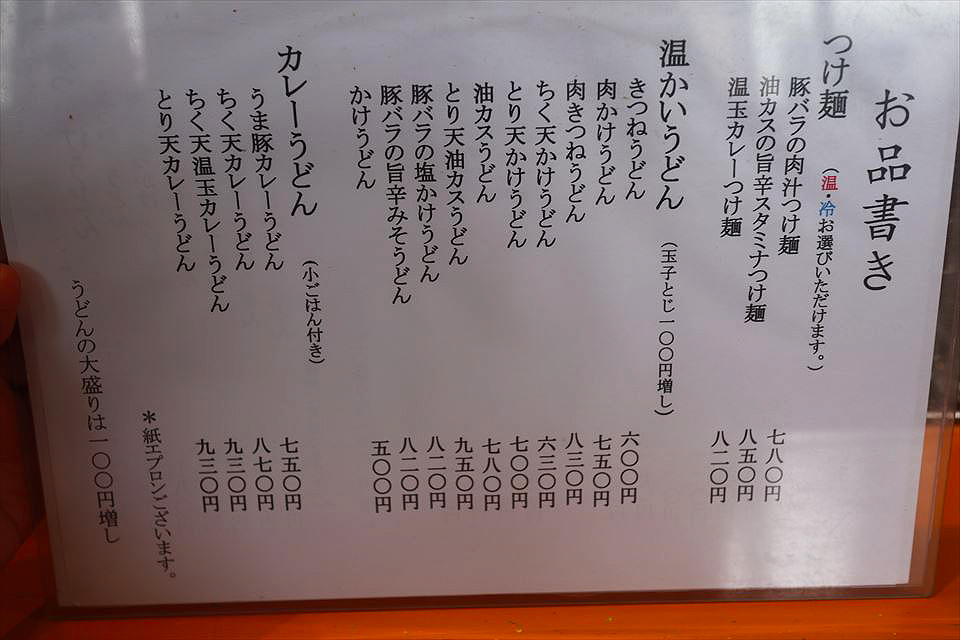 お品書き
つけ麺 (温・冷お選びいただけます。)
豚バラの肉汁つけ麺 七八〇円
油カスの旨辛スタミナつけ麺 八五〇円
温玉カレーつけ麺 八二〇円
温かいうどん (玉子とじ一〇〇円増し)
きつねうどん 六〇〇円
肉かけうどん 七五〇円
肉きつねうどん 八三〇円
ちく天かけうどん 六三〇円
とり天かけうどん 七〇〇円
油カスうどん 七八〇円
とり天油カスうどん 九五〇円
豚バラの塩かけうどん 八二〇円
豚バラの旨辛みそうどん 八二〇円
かけうどん 五〇〇円
カレーうどん (小ごはん付き)
うま豚カレーうどん 七五〇円
ちく天カレーうどん 八七〇円
ちく天温玉カレーうどん 九三〇円
とり天カレーうどん 九三〇円
*紙エプロンございます。
うどんの大盛りは一〇〇円増し